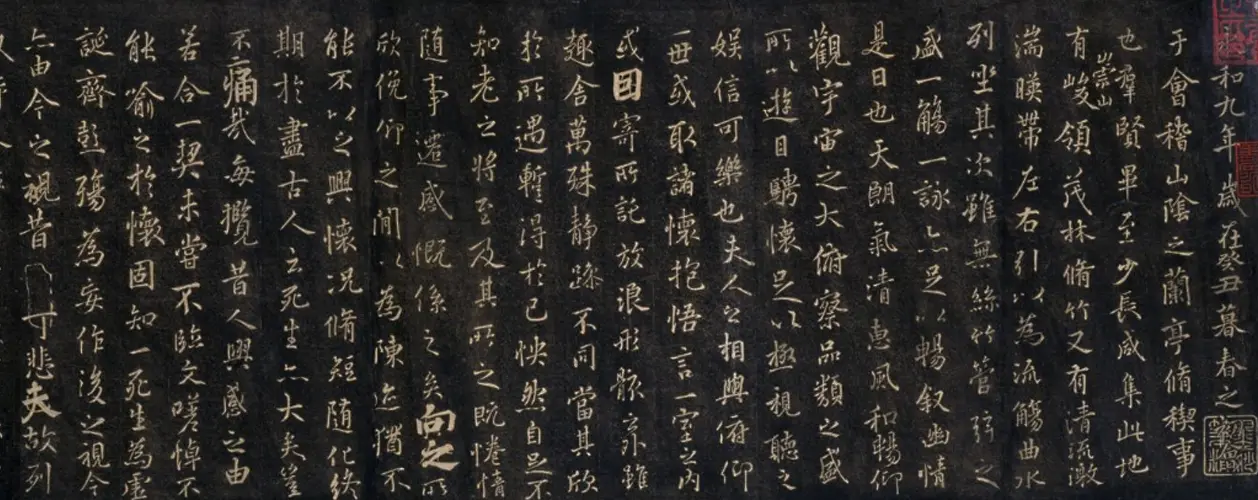 和九年歲在癸丑暮春之
于會稽山陰之蘭亭脩禊事
也羣賢畢至少長咸集此地
有崇山峻領茂林脩竹又有清流激
湍暎帶左右引以為流觴曲水
列坐其次雖無絲竹管弦之
盛一觴一詠亦足以暢敘幽情
是日也天朗氣清惠風和暢仰
觀宇宙之大俯察品類之盛
所以遊目騁懷足以極視聽之
娛信可樂也夫人之相與俯仰
一世或取諸懷抱悟言一室之內
或因寄所託放浪形骸之外雖
趣舍萬殊靜躁不同當其欣
於所遇蹔得於己怏然自足不
知老之將至及其所之既惓情
隨事遷感慨係之矣向之所
欣俛仰之閒以為陳迹猶不
能不以之興懷況脩短隨化終
期於盡古人云死生亦大矣豈
不痛哉每攬昔人興感之由
若合一契未嘗不臨文嗟悼不
能喻之於懷固知一死生為虛
誕齊彭殤為妄作後之視今
亦由今之視昔悲夫故列